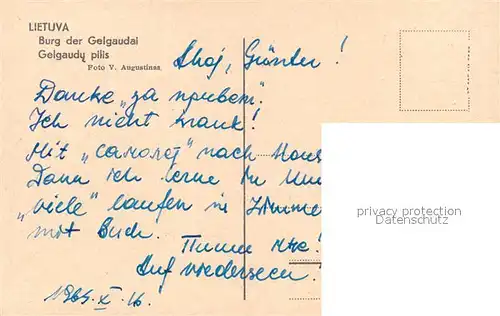 LIETUVA
Burg der Gelgaudai
Gelgaudų pilis
Foto V. Augustinas
Ahoj, Günter!
Danke „за привет“.
Ich nicht krank!
Mit „самолёт“ nach Mos
Dann ich lerne in Uni
„viele“ laufen in Zimme
mit Buch.
Пиши мне!
Auf wiederseen!
1965.X.16.
privacy protection
www.delcampe.net